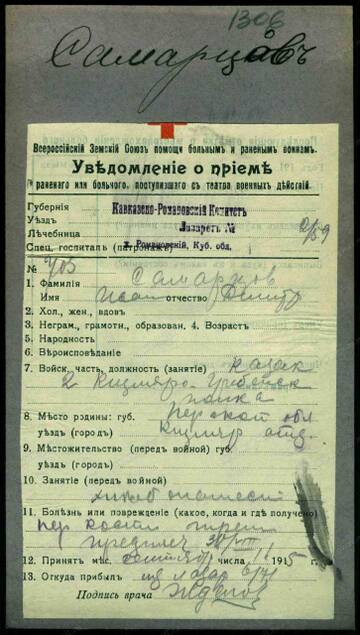 1306
Самарцовъ
Всероссійскій Земскій Союзъ помощи больнымъ и раненымъ воинамъ.
Увѣдомленіе о пріемѣ
раненаго или больного, поступившаго съ театра военныхъ дѣйствій.
Губернія Кавказско-Романовскій Комитетъ
Уѣздъ
Лѣчебница Лазаретъ №
Спец. госпиталь (патронажъ) х. Романовскій, Куб. обл.
№ 403
1. Фамилія Самарцов
Имя Иван отчество Дмитр
2. Хол., жен., вдов.
3. Неграм., грамотн., образован. 4. Возрастъ
5. Народность
6. Вѣроисповѣданіе
7. Войск. часть, должность (занятіе) казак
2 Кизляро-Гребенск
полка
8. Мѣсто родины: губ. Терской обл
уѣздъ (городъ) Кизляр отд.
9. Мѣстожительство (передъ войной) губ.
уѣздъ (городъ)
10. Занятіе (передъ войной)
хлебопашест
11. Болѣзнь или поврежденіе (какое, когда и гдѣ получено)
пер кости
предплеч
12. Принятъ мѣс. числа 1915 г.
13. Откуда прибылъ из лазар
Подпись врача